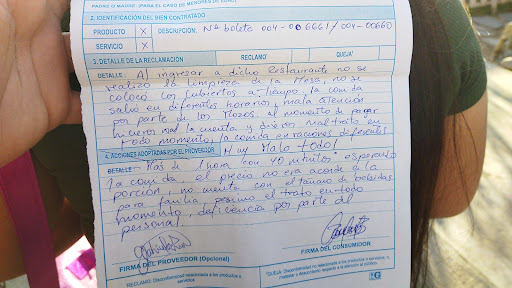 PADRE O MADRE: (PARA EL CASO DE MENORES DE EDAD)
2. IDENTIFICACIÓN DEL BIEN CONTRATADO
PRODUCTO X DESCRIPCIÓN: Nº boleto 004-006661/004-00660
SERVICIO X
3. DETALLE DE LA RECLAMACIÓN RECLAMO¹ QUEJA²
DETALLE: Al ingresar a dicho Restaurante no se
realizo la limpieza de la mesa, no se
coloco los cubiertos a tiempo, la comida
salio en diferentes horarios, mala atención
por parte de los mozos, al momento de pagar
hicieron mal la cuenta y dieron maltrato en
todo momento, la comida en raciones diferentes
4. ACCIONES ADOPTADAS POR EL PROVEEDOR Muy Malo todo!
DETALLE: Más de 1 hora con 40 minutos esperando
la comida, el precio no era acorde a la
porción, no cuenta con el tamaño de bebidas
para familia, pesimo el trato en todo
momento, deficiencia por parte del
personal.
FIRMA DEL PROVEEDOR (Opcional)
FIRMA DEL CONSUMIDOR
¹RECLAMO: Disconformidad relacionada a los productos o
servicios.
²QUEJA: Disconformidad no relacionada a los productos o servicios, o,
malestar o descontento respecto a la atención al público.